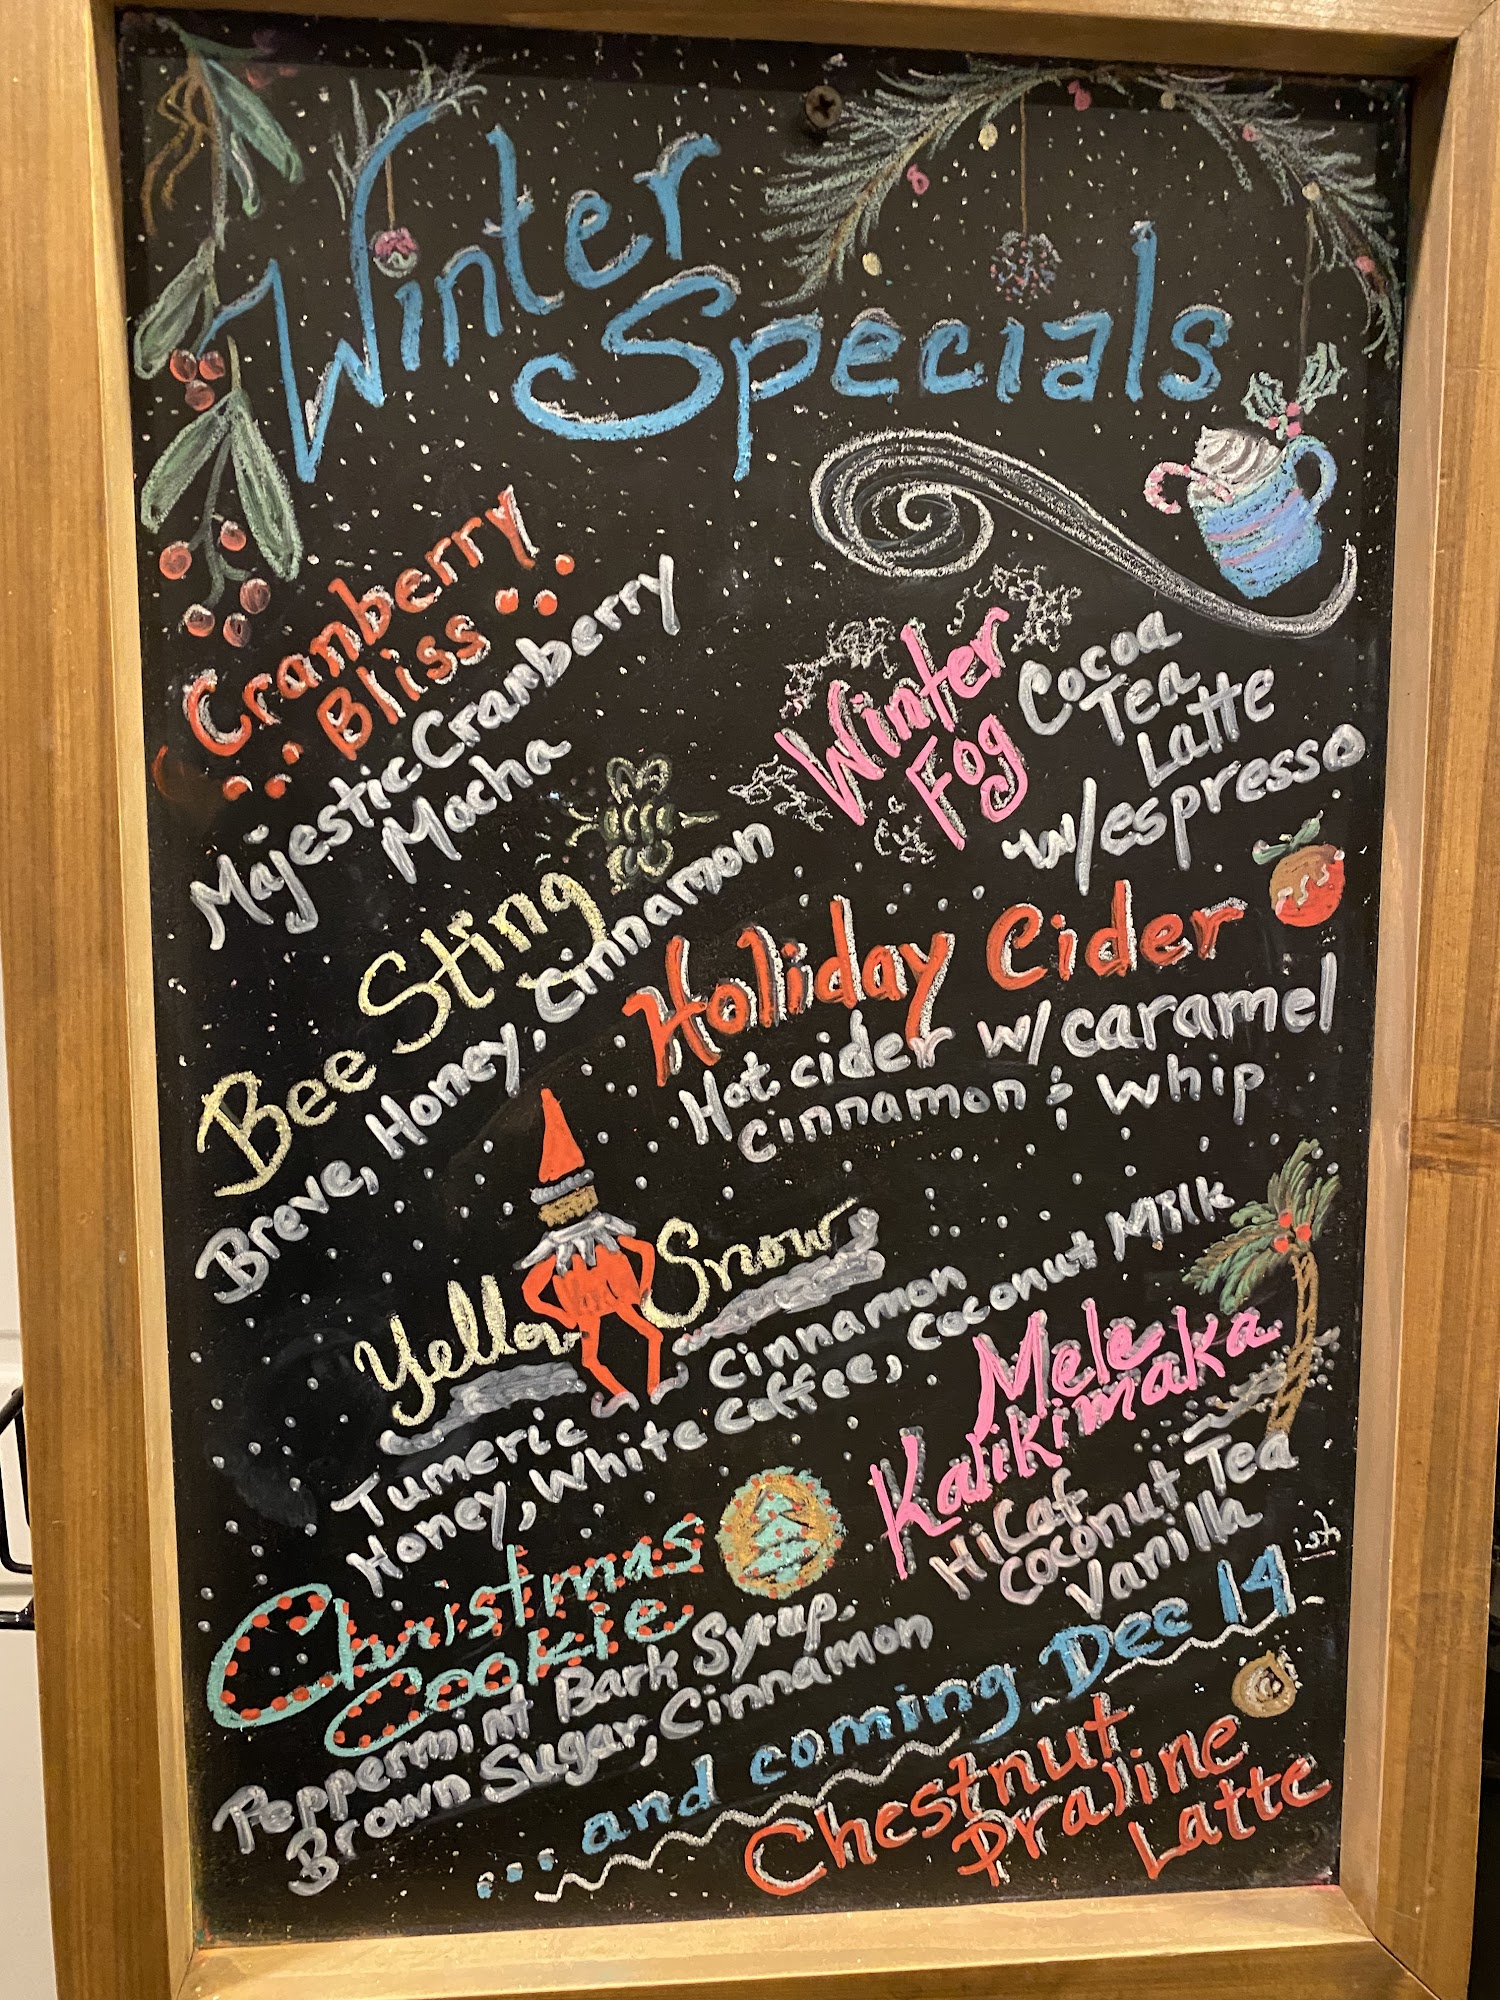 Winter
Specials
Cranberry
Bliss
Majestic Cranberry
Mocha
Winter
Fog
Cocoa
Tea
Latte
w/espresso
Bee Sting
Breve, Honey, Cinnamon
Holiday Cider
Hot cider w/caramel
Cinnamon & whip
Yellow Snow
Tumeric Cinnamon
Honey, White Coffee, Coconut Milk
Mele
Kalikimaka
HiCaf
Coconut Tea
Vanilla
Christmas
Cookie
Peppermint Bark Syrup,
Brown Sugar, Cinnamon
...and coming Dec 14 ish
Chestnut
Praline
Latte